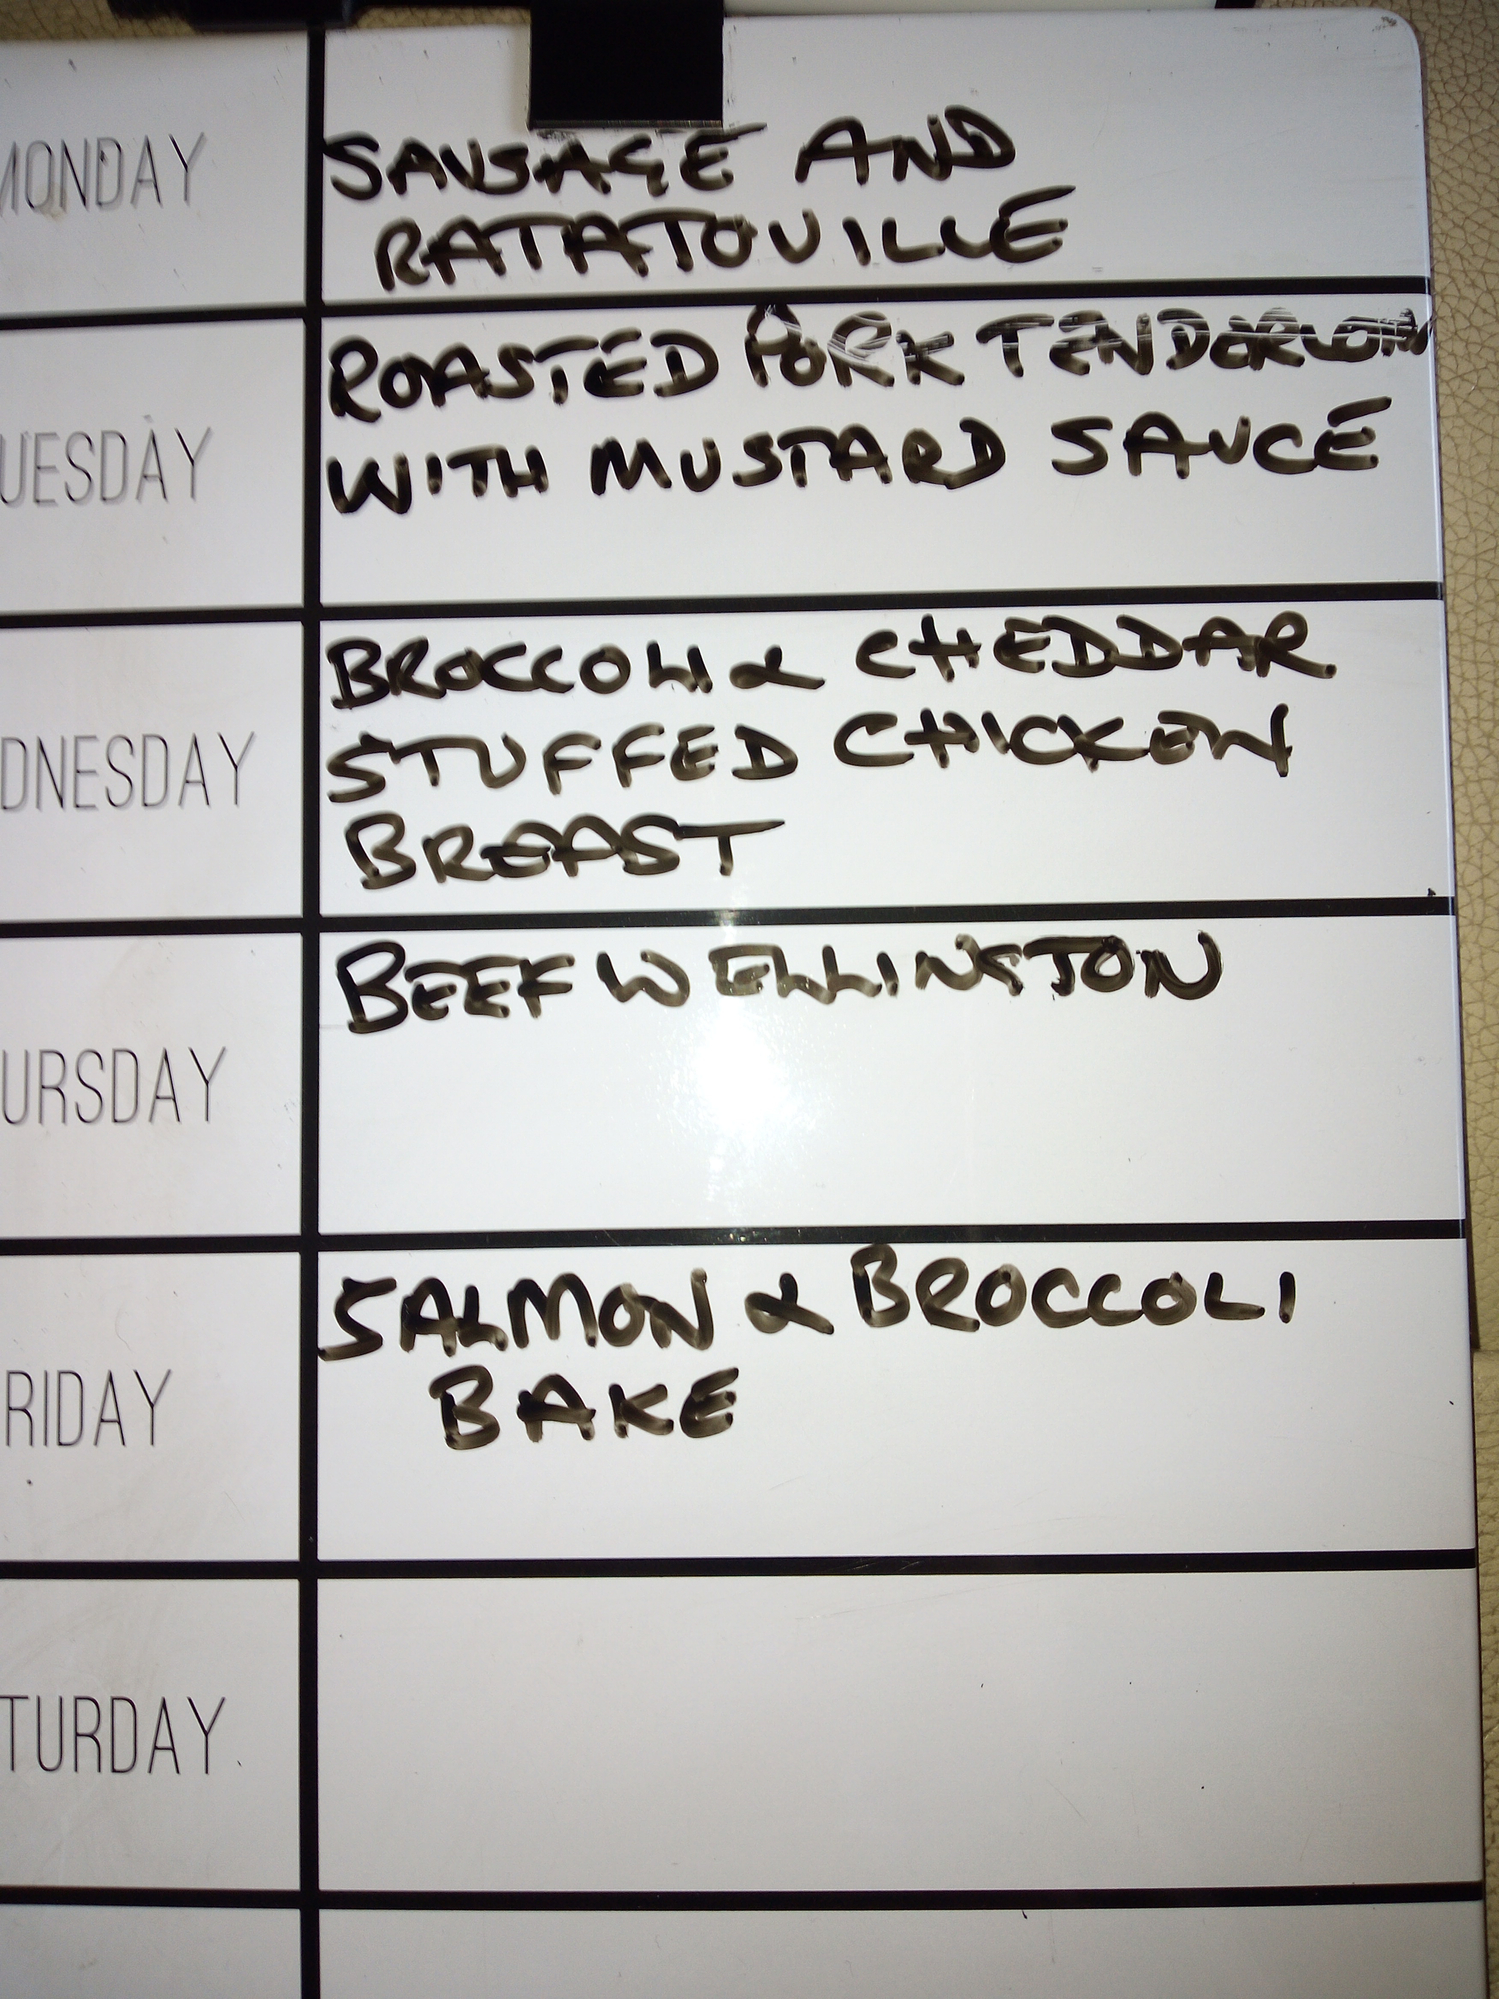 MONDAY
SAUSAGE AND
RATATOUILLE
UESDAY
ROASTED PORK TENDORLOIN
WITH MUSTARD SAUCE
DNESDAY
BROCCOLI & CHEDDAR
STUFFED CHICKEN
BREAST
URSDAY
BEEF WELLINGTON
RIDAY
SALMON & BROCCOLI
BAKE
TURDAY